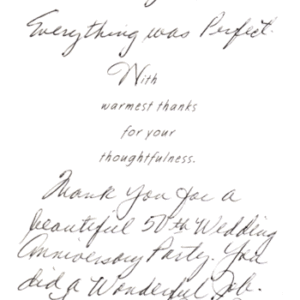 Everything was Perfect.
With
warmest thanks
for your
thoughtfulness.
Thank You for a
beautiful 50th Wedding
Anniversary Party. You
did a Wonderful Job.